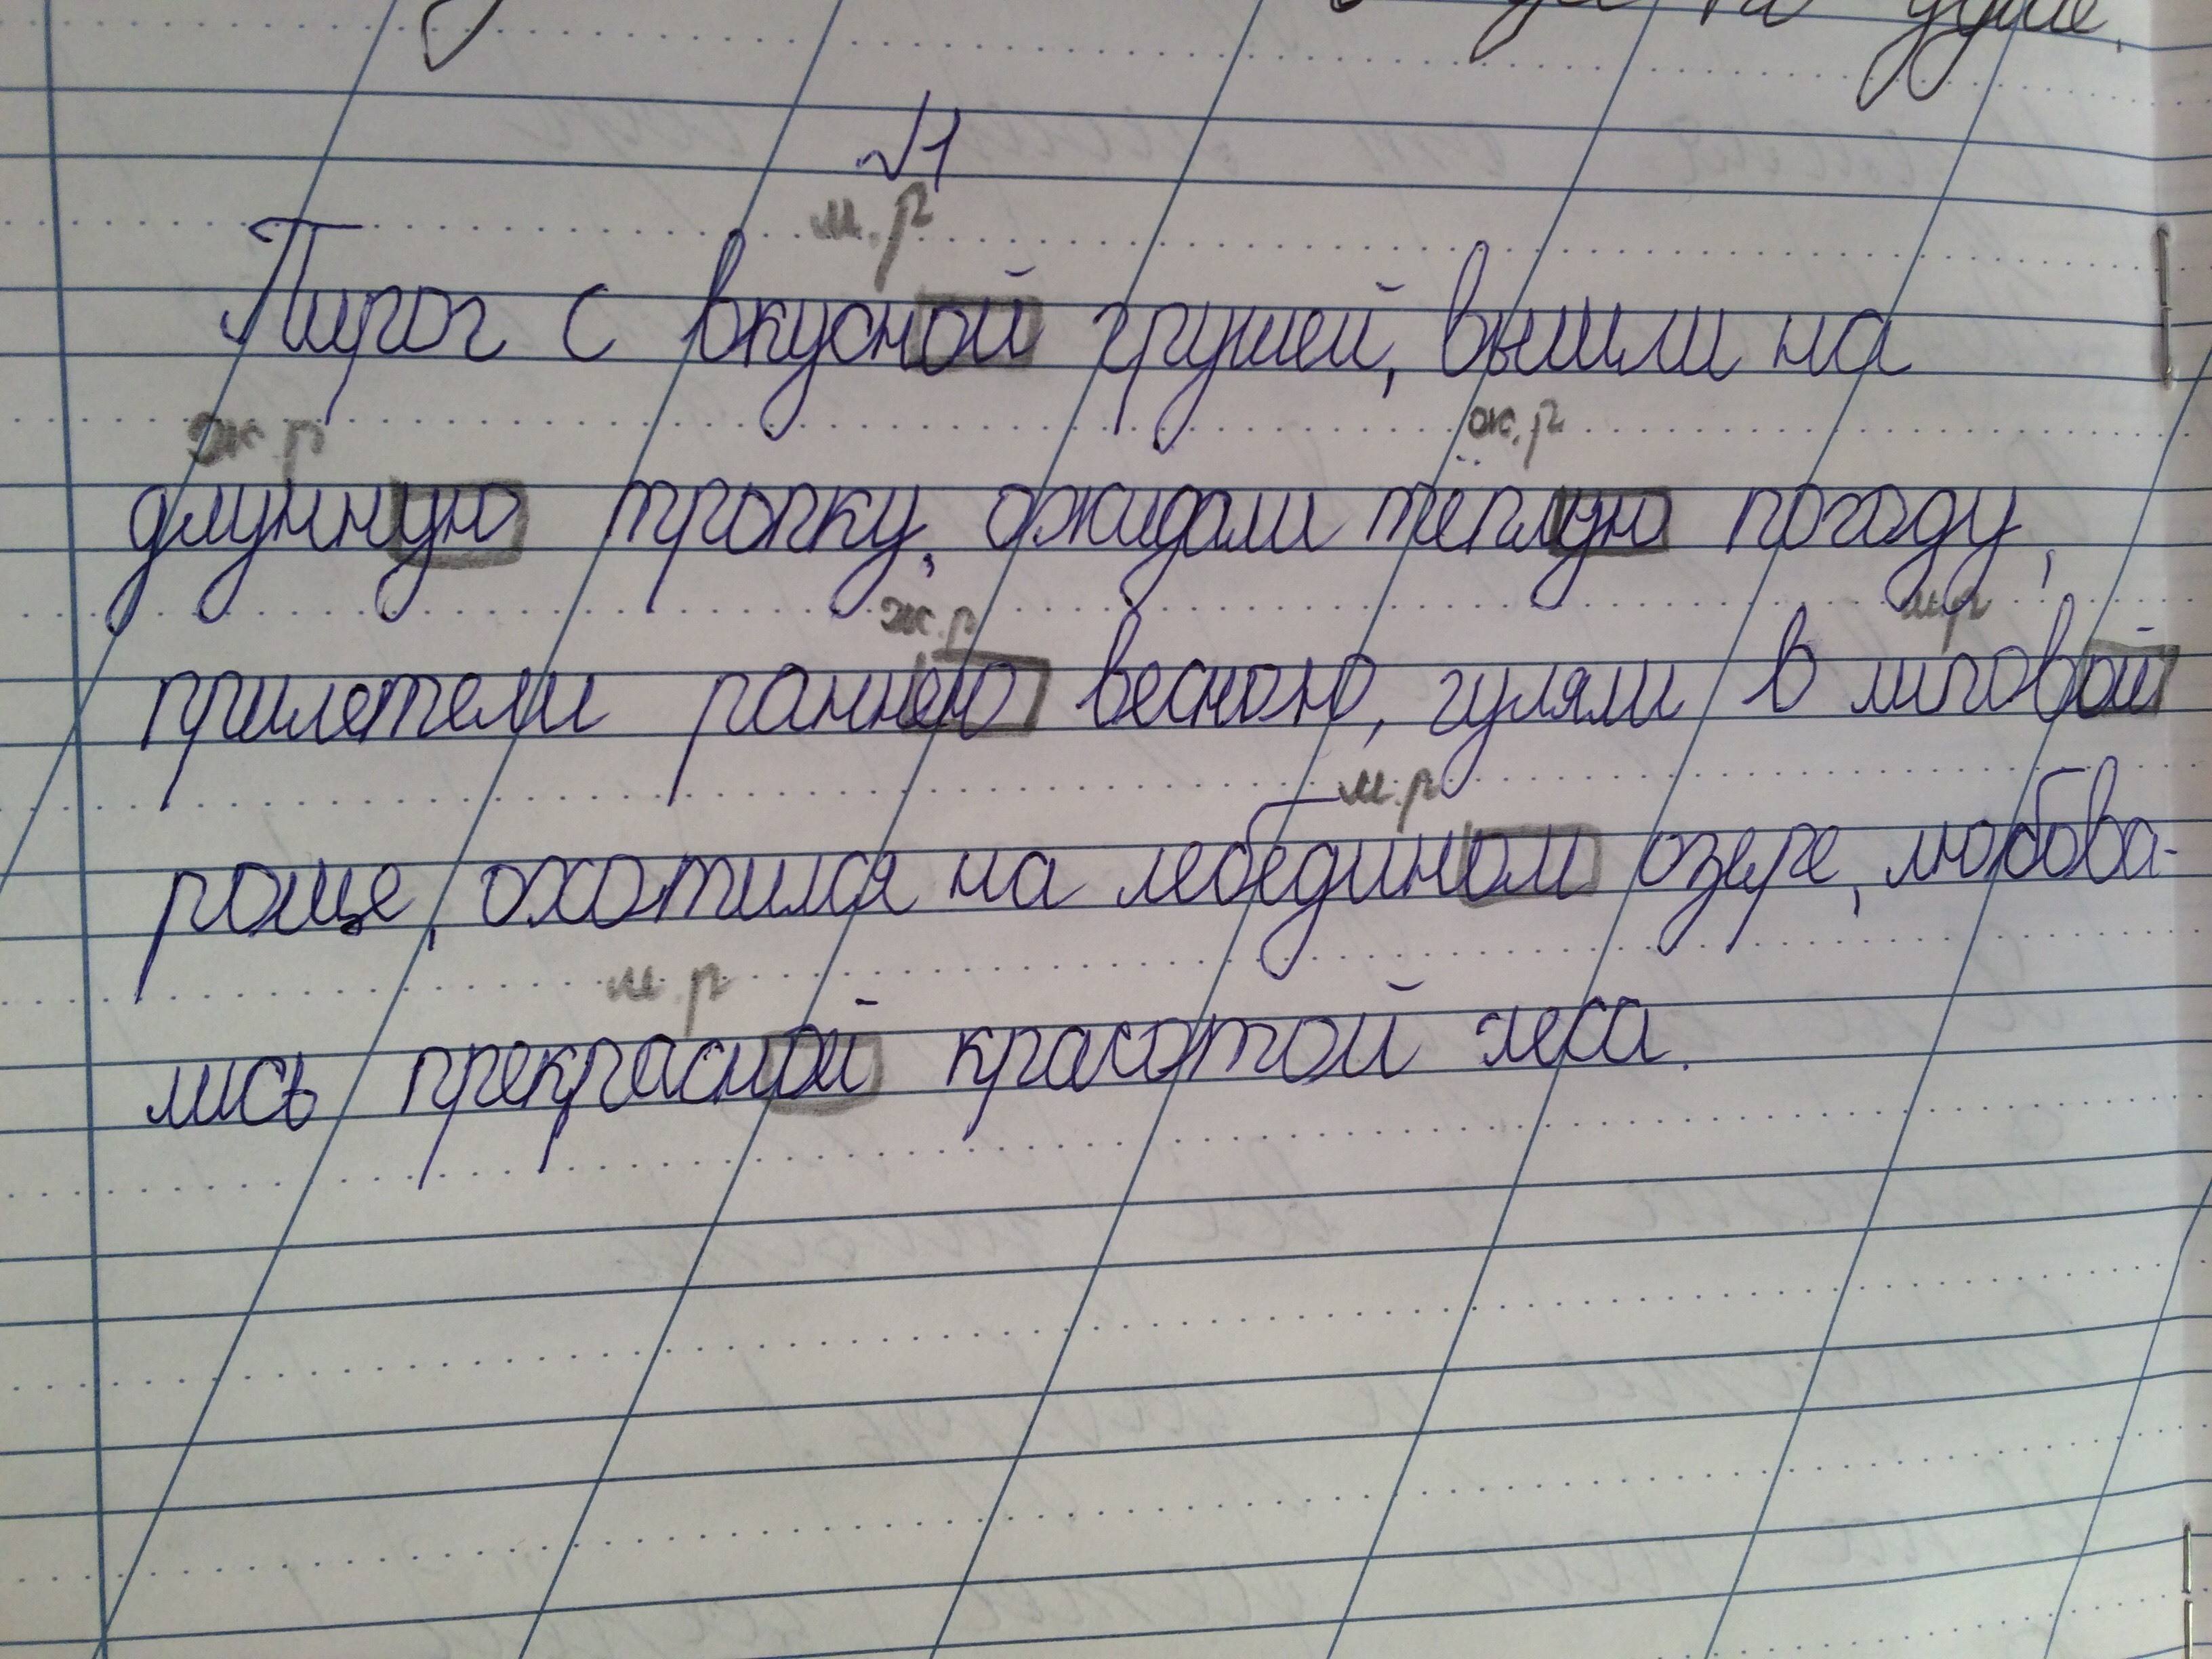 √1
м.р
Пирог с вкусной грушей, вышли на
ж.р ж.р
длунную тропку, ожидали тёплую погоду,
ж.р м.р
прилетели раннею весною, гуляли в липовой
м.р
роще, охотился на лебедином озере, любова-
м.р
лись прекрасной красотой леса.